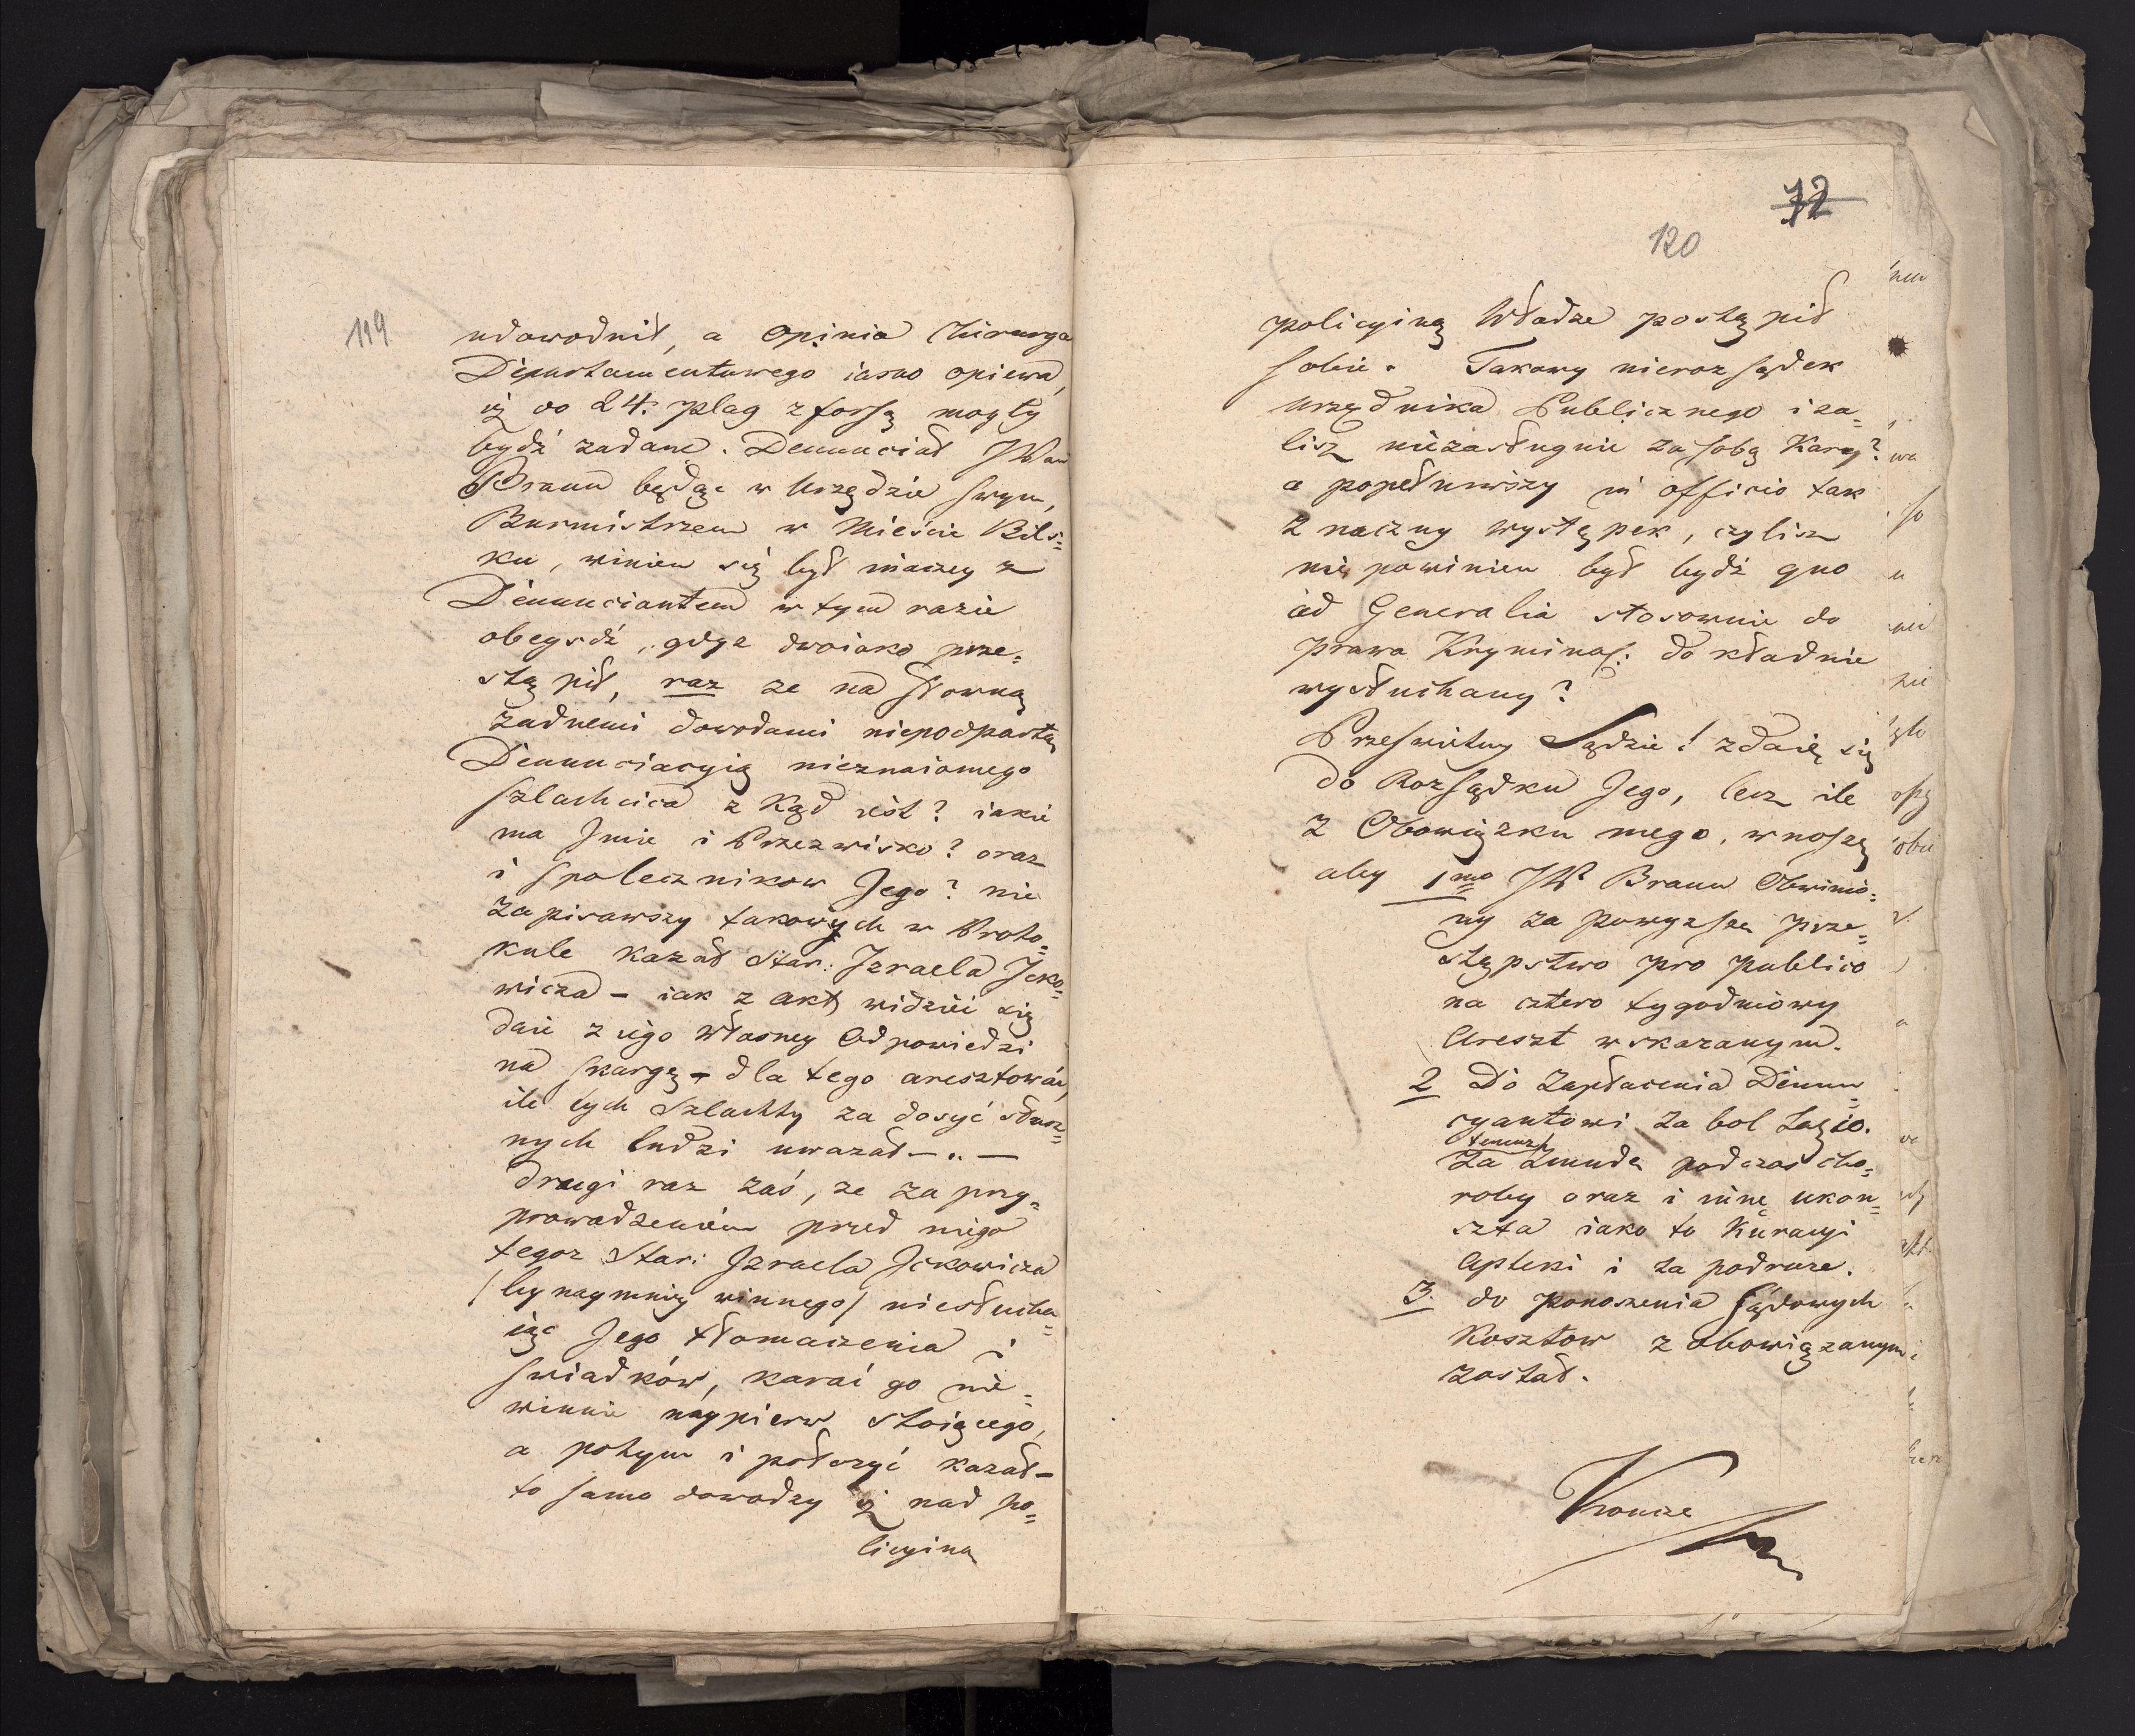 119
udowodnił, a Opinia Chirurga
Departamentowego iasno opiewa,
iż do 24. plag z forsą mogły
bydź zadane. Denunciat JWan
Braun będąc w Urzędzie swym,
Burmistrzem w Mieście Bils=
ku, winien się był inaczey z
Denunciantem w tym razie
obeysdź, gdyz dwoiako prze=
stąpił, raz ze na słowną
zadnemi dowodami niepodpartą
Denunciacyią nieznaiomego
szlachcica z kąd iest? iakie
ma Jmie i Przezwisko? oraz
i społecznikow Jego? nie
zapisawszy takowych w Proto=
kule kazał Star: Izraela Jcko=
wicza – iak z akt widzieć się
daie z iego własney Odpowiedzi
na skargę – dla tego aresztować,
ile tych Szlachty za dosyć słusz=
nych ludzi uwazał – . –
drugi raz zaś, ze za przy=
prowadzeniem przed niego
tegoz Star: Izraela Jckowicza
/bynaymniey winnego/ niesłucha=
iąc Jego tłomaczenia i
swiadków, karać go nie=
winnie naypierw stoiącego,
a potym i połozyć kazał –
to samo dowodzy iż nad po=
licyiną
72
120
policyiną Władze postąpił
sobie. Takowy nierozsądek
Urzędnika Publicznego iza=
lisz niezasługuie za sobą Kary?
a popełniwszy in officio tak
znaczny występek, czylisz
nie powinien był bydź quo
ad Generalia stosownie do
prawa Kryminal: dokładnie
wysłuchany?
Prześwietny Sądzie! zdaię się
do Rozsądku Jego, lecz ile
z Obowiązku mego, wnoszę
aby 1mo JW Braun Obwinio=
ny za powyzsze prze=
stępstwo pro publico
na cztero tygodniowy
Areszt wskazanym.
2 Do Zapłacenia Denun=
cyantowi za bol
za zmudę podczas cho=
roby oraz i inne ukon=
szta iako to Kuracyi
Apteki i za podroze.
3. do ponoszenia sądowych
Kosztow z obowiązanym
został.